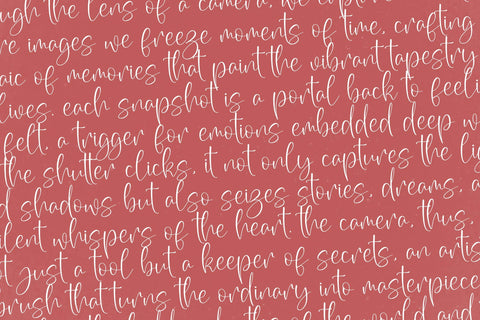 ugh the lens of a camera, we
re images we freeze moments of time, crafting
aic of memories that paint the vibrant tapestry
lives. each snapshot is a portal back to feeli
felt, a trigger for emotions embedded deep w
the shutter clicks, it not only captures the lig
d shadows but also seizes stories, dreams, a
ilent whispers of the heart. the camera, thus,
ot just a tool but a keeper of secrets, an artis
brush that turns the ordinary into masterpiece
world and